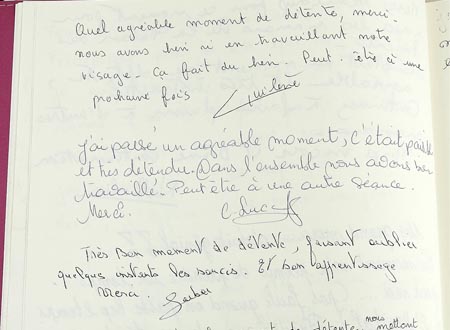 Quel agréable moment de détente, merci.
nous avons bien ri en travaillant notre
visage. Ça fait du bien. Peut être à une
prochaine fois
J'ai passé un agréable moment, c'était paisible
et très détendu. Dans l'ensemble nous avons bien
travaillé. Peut être à une autre séance.
Merci. C. Lucas
Très bon moment de détente, faisant oublier
quelques instants les soucis. Et bon apprentissage
merci.
de détente nous mettant